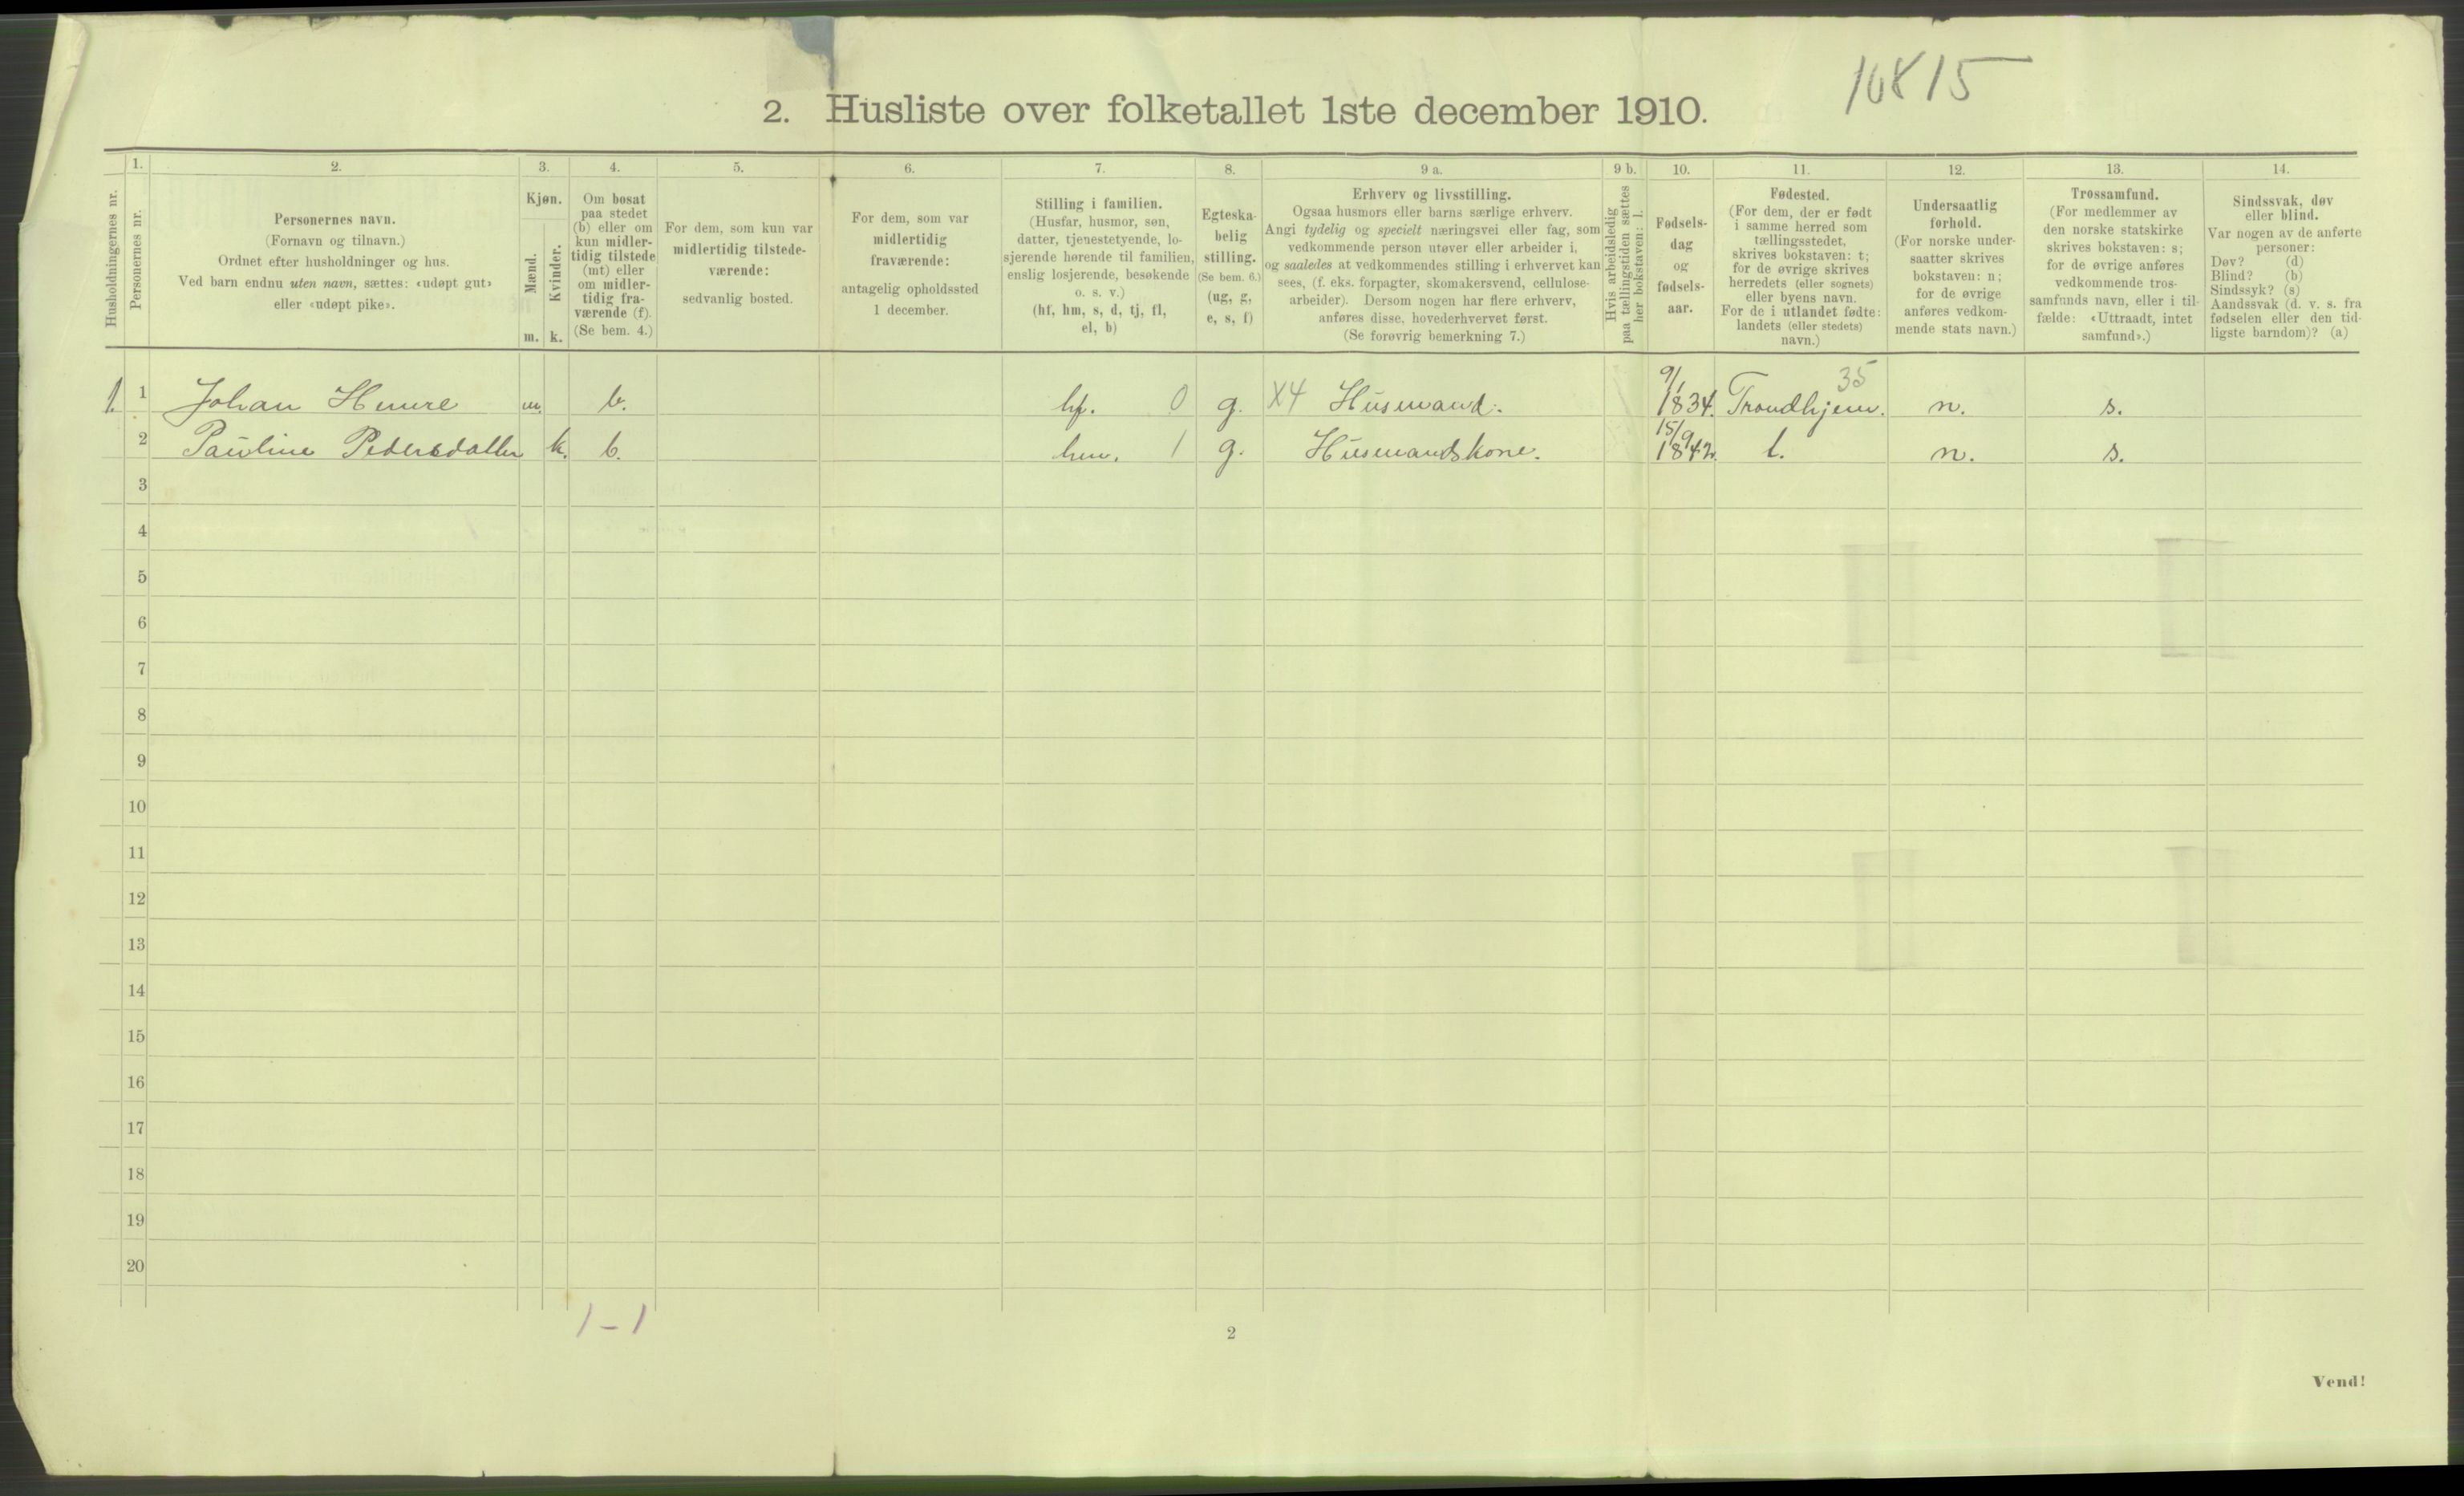 10815
2. Husliste over folketallet 1ste december 1910.
1. 2. 3. 4. 5. 6. 7. 8. 9 a. 9 b. 10. 11. 12. 13. 14.
Husholdningernes nr.
Personernes nr.
Personernes navn.
(Fornavn og tilnavn.)
Ordnet efter husholdninger og hus.
Ved barn endnu uten navn, sættes: «udøpt gut»
eller «udøpt pike».
Kjøn.
Mænd.
Kvinder.
m. k.
Om bosat
paa stedet
(b) eller om
kun midler-
tidig tilstede
(mt) eller
om midler-
tidig fra-
værende (f).
(Se bem. 4.)
For dem, som kun var
midlertidig tilstede-
værende:
sedvanlig bosted.
For dem, som var
midlertidig
fraværende:
antagelig opholdssted
1 december.
Stilling i familien.
(Husfar, husmor, søn,
datter, tjenestetyende, lo-
sjerende hørende til familien,
enslig losjerende, besøkende
o. s. v.)
(hf, hm, s, d, tj, fl,
el, b)
Egteska-
belig
stilling.
(Se bem. 6.)
(ug, g,
e, s, f)
Erhverv og livsstilling.
Ogsaa husmors eller barns særlige erhverv.
Angi tydelig og specielt næringsvei eller fag, som
vedkommende person utøver eller arbeider i,
og saaledes at vedkommendes stilling i erhvervet kan
sees, (f. eks. forpagter, skomakersvend, cellulose-
arbeider). Dersom nogen har flere erhverv,
anføres disse, hovederhvervet først.
(Se forøvrig bemerkning 7.)
Hvis arbeidsledig
paa tællingstiden sættes
her bokstaven: l.
Fødsels-
dag
og
fødsels-
aar.
Fødested.
(For dem, der er født
i samme herred som
tællingsstedet,
skrives bokstaven: t;
for de øvrige skrives
herredets (eller sognets)
eller byens navn.
For de i utlandet fødte:
landets (eller stedets)
navn.)
Undersaatlig
forhold.
(For norske under-
saatter skrives
bokstaven: n;
for de øvrige
anføres vedkom-
mende stats navn.)
Trossamfund.
(For medlemmer av
den norske statskirke
skrives bokstaven: s;
for de øvrige anføres
vedkommende tros-
samfunds navn, eller i til-
fælde: «Uttraadt, intet
samfund».)
Sindssvak, døv
eller blind.
Var nogen av de anførte
personer:
Døv? (d)
Blind? (b)
Sindssyk? (s)
Aandssvak (d. v. s. fra
fødselen eller den tid-
ligste barndom)? (a)
1. 1 Johan m. b. hf. 0 g. X4 Husmand. 9/1 1834. Trondhjem. 35 n. s.
2 Pauline Pedersdatter k. b. hm. 1 g. Husmandskone. 15/9 1842. t. n. s.
3
4
5
6
7
8
9
10
11
12
13
14
15
16
17
18
19
20
1 – 1
2
Vend!